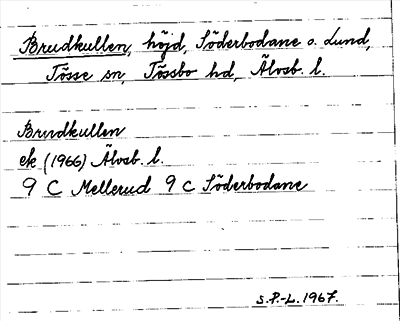 Brudkullen, höjd, Söderbodane o. Lund,
Tösse sn, Tössbo hd, Älvsb. l.
Brudkullen
ek (1966) Älvsb. l.
9 C Mellerud 9 c Söderbodane
S.P.-L. 1967.